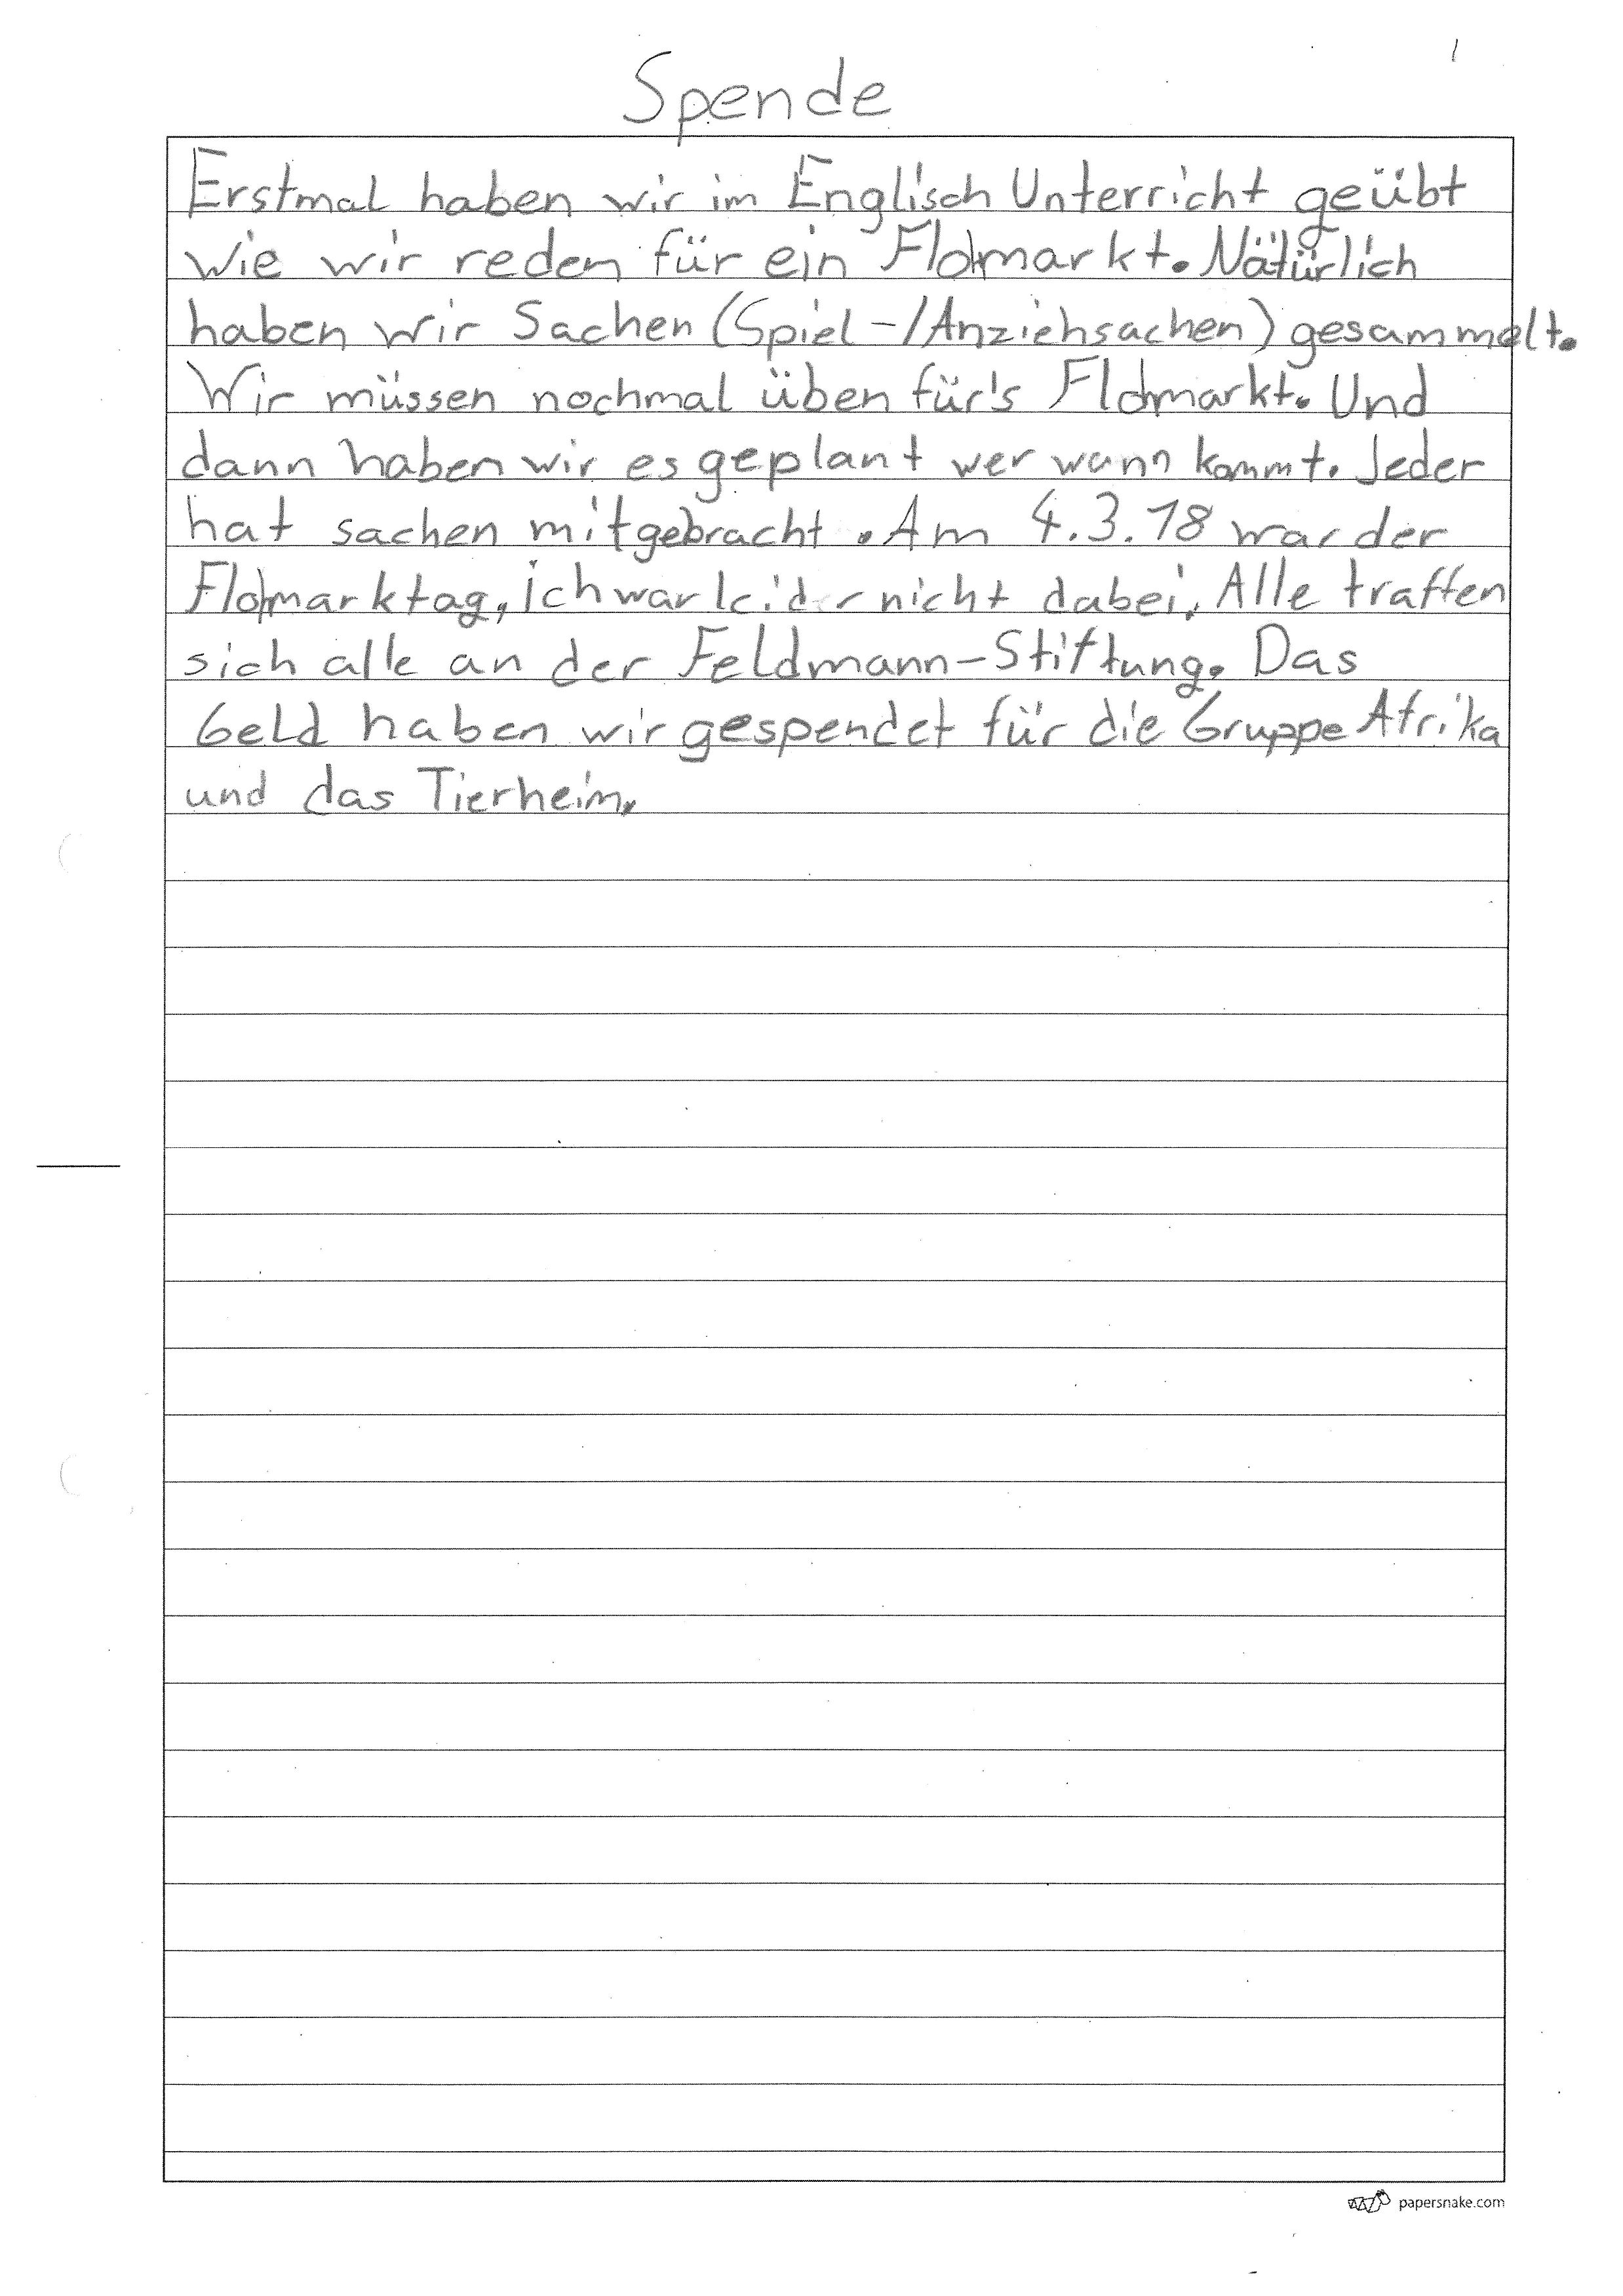 1
Spende
Erstmal haben wir im Englisch Unterricht geübt
wie wir reden für ein Flohmarkt. Nätürlich
haben wir Sachen (Spiel-/Anziehsachen) gesammelt.
Wir müssen nochmal üben für's Flohmarkt. Und
dann haben wir es geplant wer wann kommt. Jeder
hat sachen mitgebracht. Am 4.3.18 war der
Flohmarktag, ich war leider nicht dabei. Alle traffen
sich alle an der Feldmann-Stiftung. Das
Geld haben wir gespendet für die Gruppe Afrika
und das Tierheim.
papersnake.com